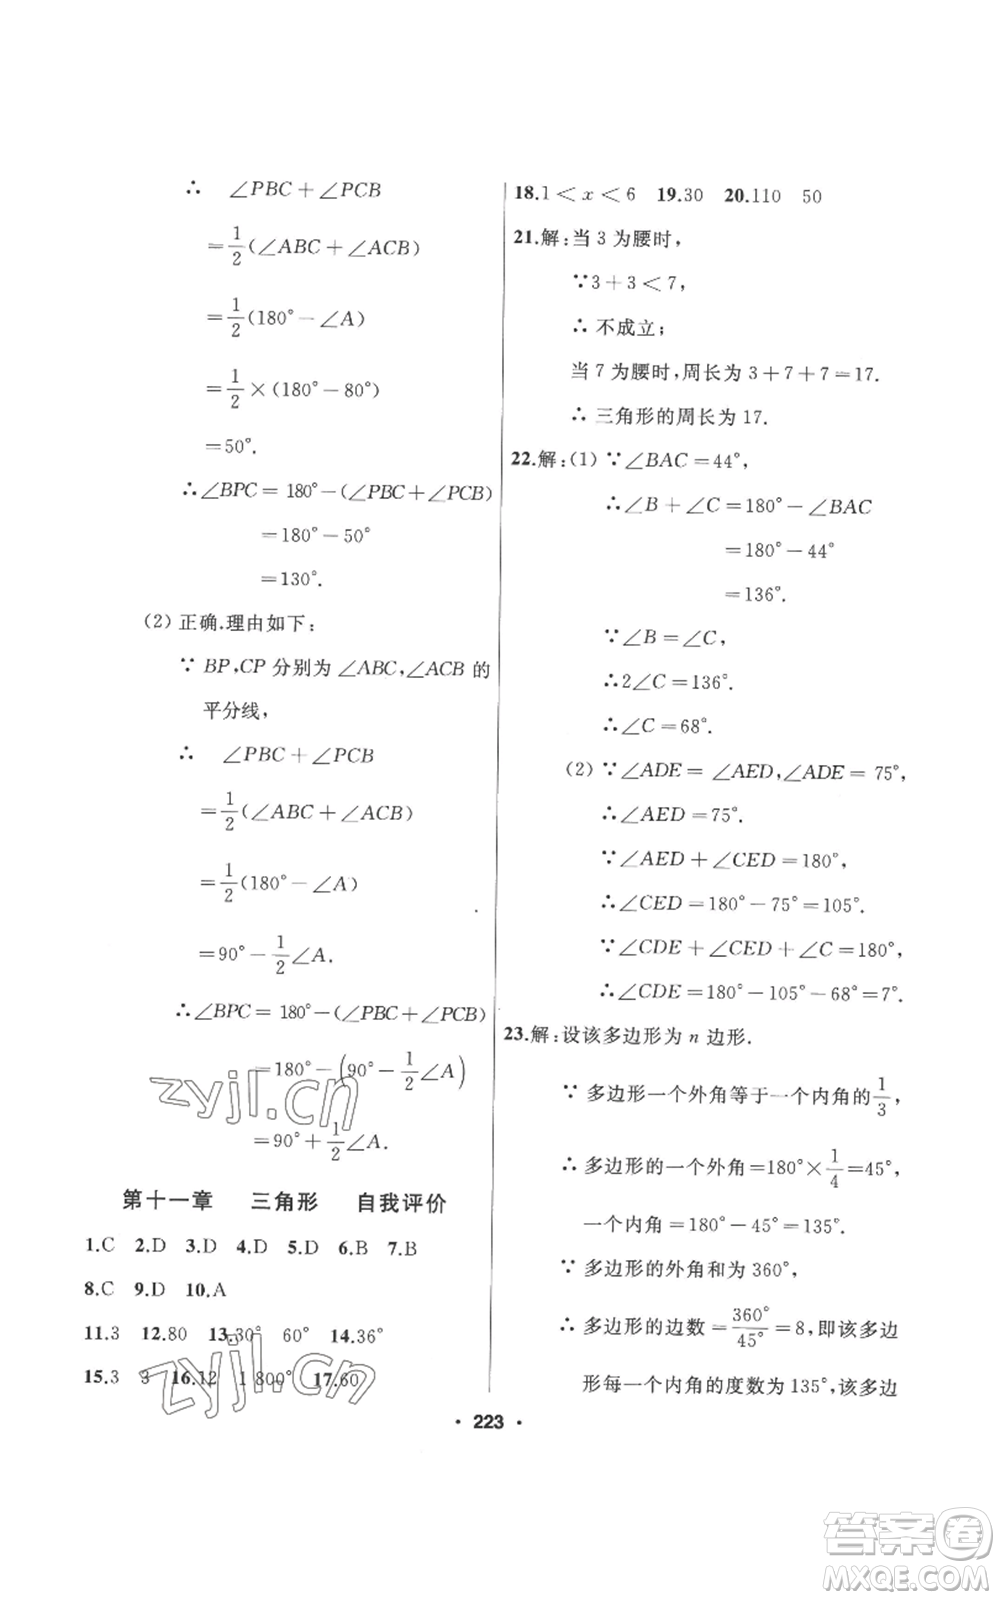 ∴ ∠PBC+∠PCB
=1/2(∠ABC+∠ACB)
=1/2(180°-∠A)
=1/2×(180°-80°)
=50°.
∴∠BPC=180°-(∠PBC+∠PCB)
=180°-50°
=130°.
(2) 正确.理由如下:
∵ BP,CP 分别为∠ABC,∠ACB 的
平分线,
∴ ∠PBC+∠PCB
=1/2(∠ABC+∠ACB)
=1/2(180°-∠A)
=90°-1/2∠A.
∴∠BPC=180°-(∠PBC+∠PCB)
=180°-(90°-1/2∠A)
=90°+1/2∠A.
第十一章 三角形 自我评价
1.C 2.D 3.D 4.D 5.D 6.B 7.B
8.C 9.D 10.A
11.3 12.80 13.30° 60° 14.36°
15.3 3 16.12 1 800° 17.60
18.1<x<6 19.30 20.110 50
21.解:当 3 为腰时,
∵3+3<7,
∴ 不成立;
当 7 为腰时,周长为 3+7+7=17.
∴ 三角形的周长为 17.
22.解:(1) ∵∠BAC=44°,
∴∠B+∠C=180°-∠BAC
=180°-44°
=136°.
∵∠B=∠C,
∴2∠C=136°.
∴∠C=68°.
(2) ∵∠ADE=∠AED,∠ADE=75°,
∴∠AED=75°.
∵∠AED+∠CED=180°,
∴∠CED=180°-75°=105°.
∵∠CDE+∠CED+∠C=180°,
∴∠CDE=180°-105°-68°=7°.
23.解:设该多边形为 n 边形.
∵ 多边形一个外角等于一个内角的1/3,
∴ 多边形的一个外角=180°×1/4=45°,
一个内角=180°-45°=135°.
∵ 多边形的外角和为 360°,
∴ 多边形的边数=360°/45°=8,即该多边
形每一个内角的度数为 135°,该多边
· 223 ·
zyjl.cn
zyjl.cn
答案卷
MXQE.COM